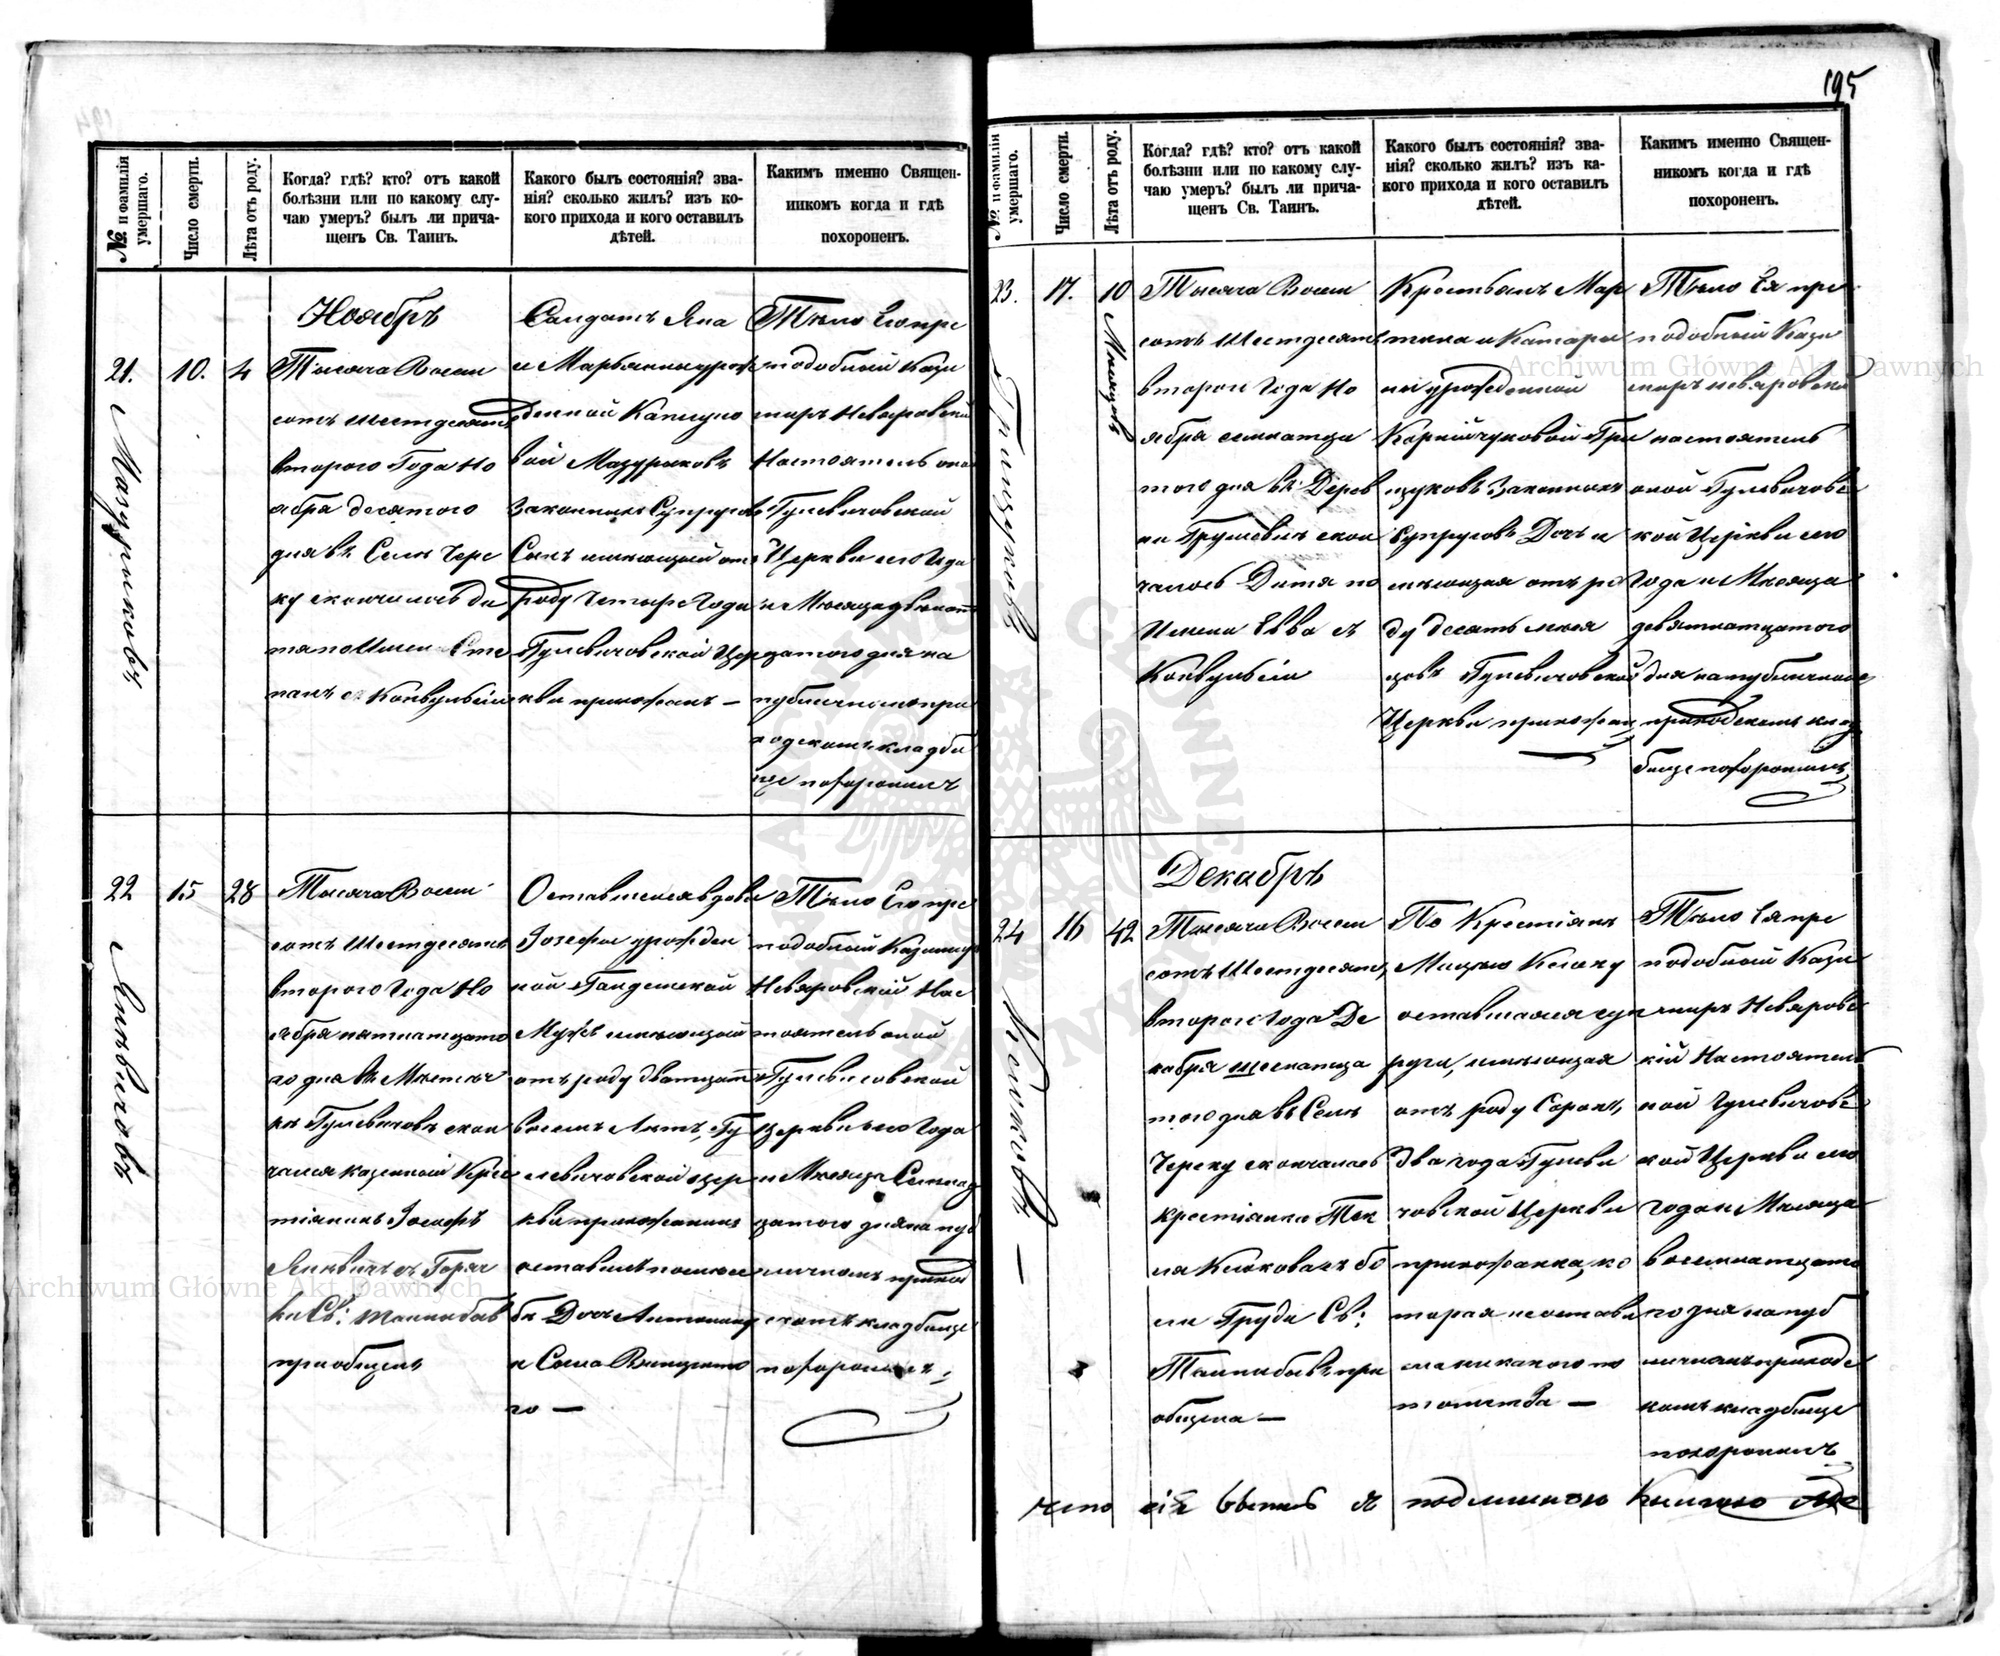 195
№ и фамилія умершаго.
Число смерти.
Лѣта отъ роду.
Когда? гдѣ? кто? отъ какой
болѣзни или по какому слу-
чаю умеръ? былъ ли прича-
щенъ Св. Таинъ.
Какого былъ состоянія? зва-
нія? сколько жилъ? изъ ко-
кого прихода и кого оставилъ
дѣтей.
Какимъ именно Священ-
никомъ когда и гдѣ
похороненъ.
21.
Мазуриковъ
10.
4
Ноябрь
Тысяча Восем
сотъ шестдесятъ
втораго Года Но
ября десятого
дня въ Селѣ Чере
ку скончалось ди
тя по Имени Сте
панъ с Конвульсіи
Солдатъ Яна
и Марьянны урож
денной Капицио
вой Мазуриковъ
Законныхъ Супруговъ
Сынъ имѣющій отъ
роду Четыре Года
Гулевичовской Цер
кви прихожанъ —
Тѣло Его пре
подобный Кази
миръ Невяровскій
Настоятель оной
Гулевичовской
Церкви сего Года
и Мѣсяца двенат
цатого дня на
публичномъ при
ходскомъ кладби
ще похоронилъ
22
Янкѣвичовъ
15
28
Тысяча Восем
сотъ Шестдесятъ
втораго Года Но
ября пятнатцато
го дня въ Мѣстеч
кѣ Гулевичовъ скон
чался казенный Крес
тіянинъ Іосифъ
Янкѣвичъ с Горяч
ки Св: Тайнъ бывъ
приобщенъ
Оставшейся вдовы
Іозефы урожден
ной Гандешской
Мужъ имѣющій
отъ роду Дватцать
восемь Лѣтъ, Гу
левичовской цер
кви прихожанинъ
оставилъ по себѣ
Дочь Антонину
и Сына Винценто
го —
Тѣло Его пре
подобный Казимиръ
Невяровскій Нас
тоятель оной
Гулевичовской
Церкви сего Года
и Мѣсяца Семнад
цатого дня на пуб
личномъ приход
скомъ кладбище
похоронилъ
№ и фамилія умершаго.
Число смерти.
Лѣта отъ роду.
Когда? гдѣ? кто? отъ какой
болѣзни или по какому слу-
чаю умеръ? былъ ли прича-
щенъ Св. Таинъ.
Какого былъ состоянія? зва-
нія? сколько жилъ? изъ ка-
кого прихода и кого оставилъ
дѣтей.
Какимъ именно Священ-
никомъ когда и гдѣ
похороненъ.
23.
Грищуковъ
17.
10 Мѣсяцевъ
Тысяча Восем
сотъ Шестдесятъ
второго Года Но
ября семнатца
того дня въ Дерев
ни Грушевкѣ скон
чалось Дитя по
Имени Евва съ
Конвульсіи
Крестьянъ Мар
тина и Катари
ны урожденной
Карнійчуковой Гри
щуковъ Законныхъ
Супруговъ Дочь и
мѣющая отъ ро
ду десять мѣся
цовъ Гулевичовской
Церкви прихожан
Тѣло Ея пре
подобный Кази
миръ Невяровскій
настоятель
оной Гулевичовс
кой Церкви сего
Года и Мѣсяца
девятнатцатого
дня на публичномъ
приходскомъ клад
бище похоронилъ
24
Клюковъ —
16
42
Декабрь
Тысяча Восем
сотъ Шестдесятъ
второго Года Де
кабря шеснатца
того дня въ Селѣ
Череку скончалась
крестіянка Тек
ля Клюкова съ бо
ли Груди Св:
Тайнъ бывъ при
общена —
По Крестіянѣ
Мацѣю Клюку
оставшаяся суп
руга, имѣющая
отъ роду Сорокъ
два года Гулеви
човской Церкви
прихожанка, ко
торая не остави
ла никакого по
томства —
Тѣло Ея пре
подобный Кази
миръ Невяровс
кій Настоятель
ной Гулевичовс
кой Церкви сего
года и Мѣсяца
восемнатцато
го дня на пуб
личномъ приходс
комъ кладбище
похоронилъ
что сія вѣрна съ подлинною Книгою
Archiwum Główne Akt Dawnych
Archiwum Główne Akt Dawnych
ARCHIWUM GŁÓWNE AKT DAWNYCH